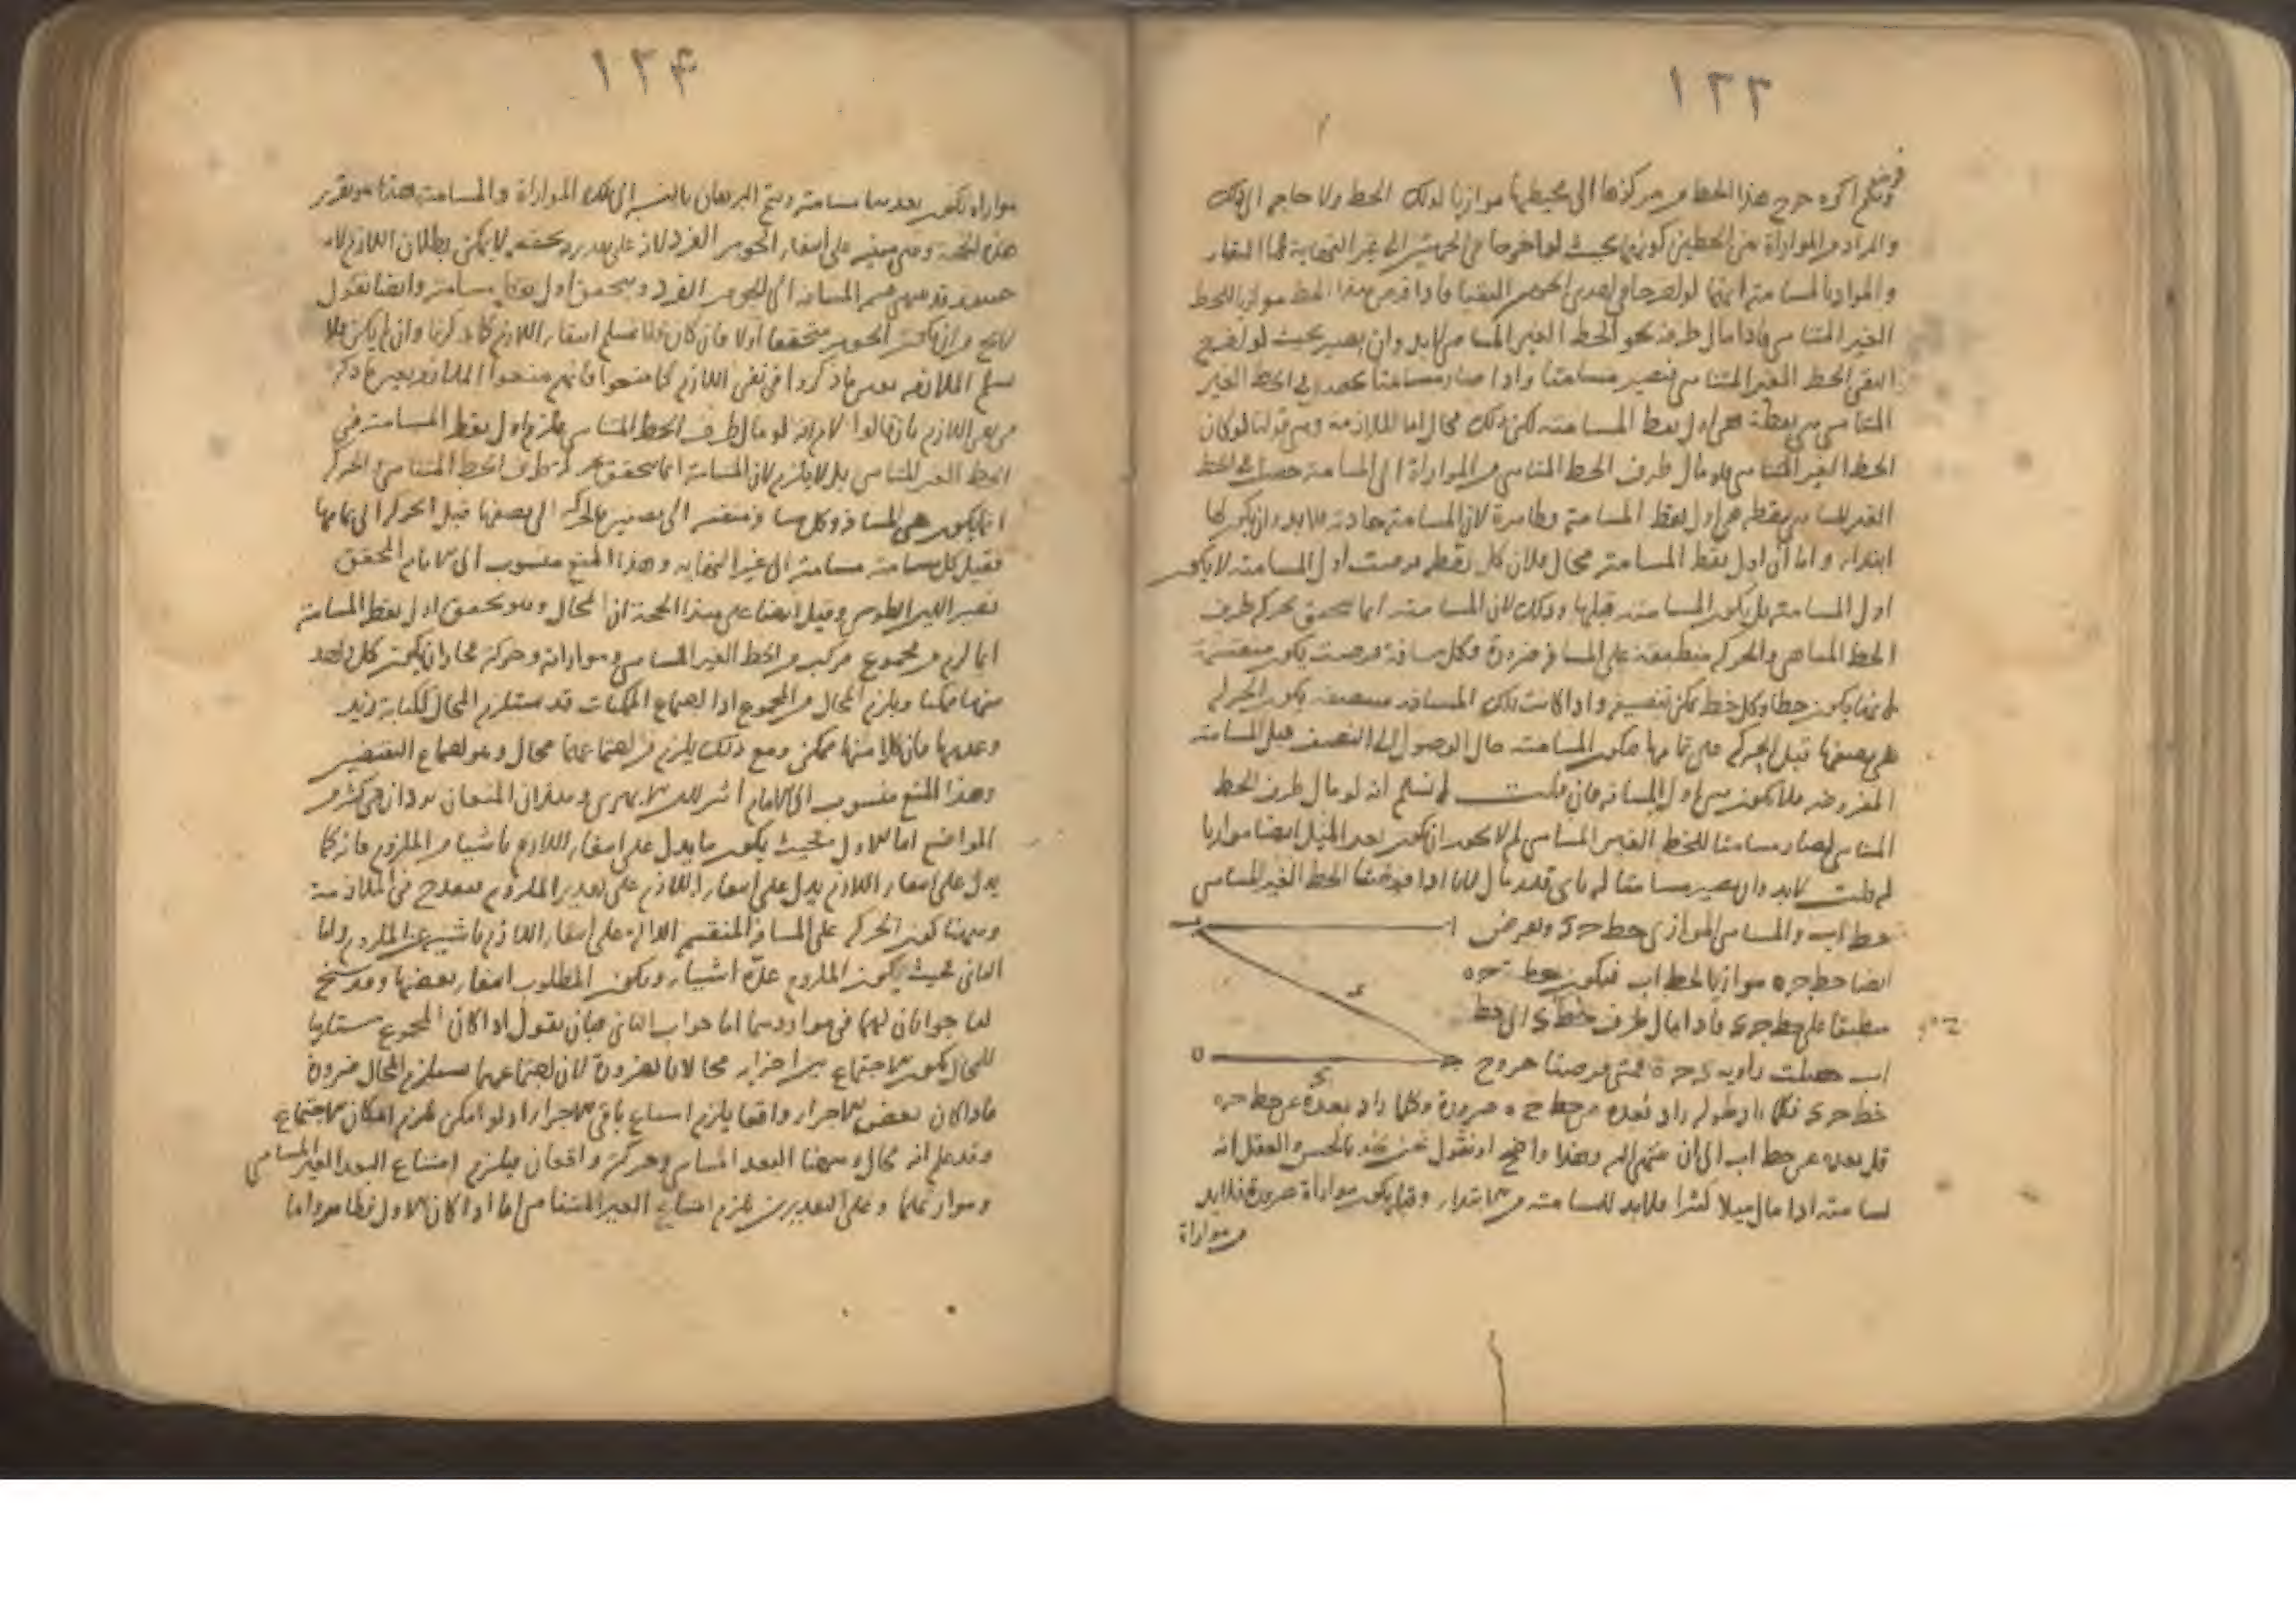 ١٣٣
وبعضهم فرض اكره خرج هذا الخط من مركزها الى محيطها موازيا لذلك الخط ولا حاجه الى ذلك
والمراد من الموازاة بين الخطين كونهما بحيث لو اخرجا في الجهتين الى غير النهاية لما التقيا
والمراد بالمسامتة انهما لو اخرجا في احدى الجهتين التقيا فاذا فرض هذا الخط موازيا للخط
الغير المتناهي فاذا مال طرفه نحو الخط الغير المتناهي لابد وان يصير بحيث لو اخرج
التقى الخط الغير المتناهي فيصير مسامتا واذا صار مسامتا في الخط الغير
المتناهي نقطة هي اول نقط المسامتة لكن ذلك محال اما الملازمة وهي قولنا لو كان
الخط الغير المتناهي فلو مال طرف الخط المتناهي من الموازاة الى المسامتة حصل في الخط
الغير المتناهي نقطة هي اول نقط المسامتة فظاهرة لان المسامتة حادثة فلا بد وان يكون لها
ابتداء واما ان اول نقط المسامتة محال فلان كل نقطه فرضت اول المسامتة لا يكون
اول المسامتة بل يكون المسامتة قبلها وذلك لان المسامتة انما تتحقق بحركة طرف
الخط المتناهي والحركة منطبقة على المسافة ضرورة وكل مسافة فرضت يكون منقسمة
لانها يكون خطا وكل خط يمكن تنصيفه واذا كانت تلك المسافة منصفه يكون الحركة
على نصفها قبل الحركة على تمامها فيكون المسامتة حال الوصول الى النصف قبل المسامتة
المفروضه فلا يكون هي اول المسافة فان قلت لا نسلم انه لو مال طرف الخط
المتناهي لصار مسامتا للخط الغير المتناهي لم لا يجوز ان يكون بعد الميل ايضا موازيا
له قلت لابد وان يصير مسامتا له باي قدر مال لانا اذا فرضنا الخط الغير المتناهي
خط اب والمتناهي الموازي خط حى ونفرض
ايضا خط حه موازيا لخط اب فيكون خط حه
منطبقا على خط حى فاذا مال طرف خط ى الى خط
اب حصلت زاويه ى ح ه فمتى فرضنا خروج
خط حى فكلما زاد طوله زاد بعده عن خط ح ه ضرورة وكلما زاد بعده عن خط حه
قل بعده عن خط اب الى ان ينتهي اليه وهذا واضح او نقول نحن نجد بالحس والعقل انه
يسامته اذا مال ميلا كثيرا فلابد للمسامتة من ابتداء وقبله يكون موازاة ضرورة فلابد
من موازاة
١٣٤
موازاة يكون بعدها مسامتة ويتم البرهان بالنسبة الى تلك الموازاة والمسامتة هذا هو تقرير
هذه الحجة وهي مبنية على انتفاء الجوهر الفرد لان على تقدير تحققه لا يمكن بطلان اللازم لانه
حينئذ قد ينتهي قسم المسافة الى الجوهر الفرد ويتحقق اول نقط مسامتة وايضا نقول
لا يخ من ان يكون الجوهر متحققا اولا فان كان فلا نسلم انتفاء اللازم كما ذكرنا وان لم يكن فلا
نسلم الملازمة بعين ما ذكروا في نفي اللازم كما منعوا فانهم منعوا الملازمة بعين ما ذكر
في نفي اللازم بان قالوا لا نم انه لو مال طرف الخط المتناهي يلزم اول نقط المسامتة في
الخط الغير المتناهي بل لا يلزم لان المسامتة انما تتحقق بحركة طرف الخط المتناهي والحركة
انما يكون على المسافة وكل مسافة منقسمة الى نصفين فالحركة الى نصفها قبل الحركة الى تمامها
فقبل كل مسامتة مسامتة الى غير النهايه وهذا المنع منسوب الى الامام المحقق
نصير الدين الطوسي وقيل ايضا على هذا الحجة ان المحال وهو تحقق اول نقط المسامتة
انما لزم من مجموع مركب من الخط الغير المتناهي وموازاته وحركة فجاز ان يكون كل واحد
منها ممكنا ويلزم المحال من المجموع اذ اجتماع الممكنات قد يستلزم المحال ككتابة زيد
وعدمها فان كلا منهما ممكن ومع ذلك يلزم من اجتماعهما محال وهو اجتماع النقيضين
وهذا المنع منسوب الى الامام اثير الدين الابهري وهذان المنعان يردان في كثير من
المواضع اما الاول فحيث يكون ما يدل على انتفاء اللازم ناشيا من الملزوم فانه كما
يدل على انتفاء اللازم يدل على انتفاء اللازم على تقدير الملزوم فيقدح في الملازمة
وههنا كون الحركة على المسافة المنقسمة الدالة على انتفاء اللازم ناشية من الملزوم واما
الثاني فحيث يكون الملزوم عدة اشياء ويكون المطلوب انتفاء بعضها وقد سنح
لنا جوابان لهما في مواردهما اما جواب الثاني فبان نقول اذا كان المجموع مستلزما
للمحال يكون الاجتماع بين اجزائه محالا بالضرورة لان اجتماعهما يستلزم المحال ضرورة
فاذا كان بعض الاجزاء واقعا يلزم امتناع باقي الاجزاء اذ لو امكن يلزم امكان الاجتماع
وقد علم انه محال وههنا البعد المتناهي وحركته واقعان فيلزم امتناع البعد الغير المتناهي
وموازاتهما وعلى التقديرين يلزم امتناع الغير المتناهي اما اذا كان الاول فظاهر واما